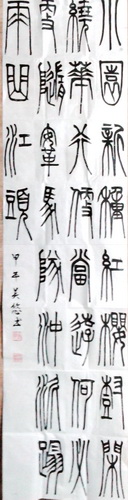 小園新種紅櫻樹閑
繞華行便當遊何必
更隨鞌馬隊沖泥蹋
雨曲江頭
甲午